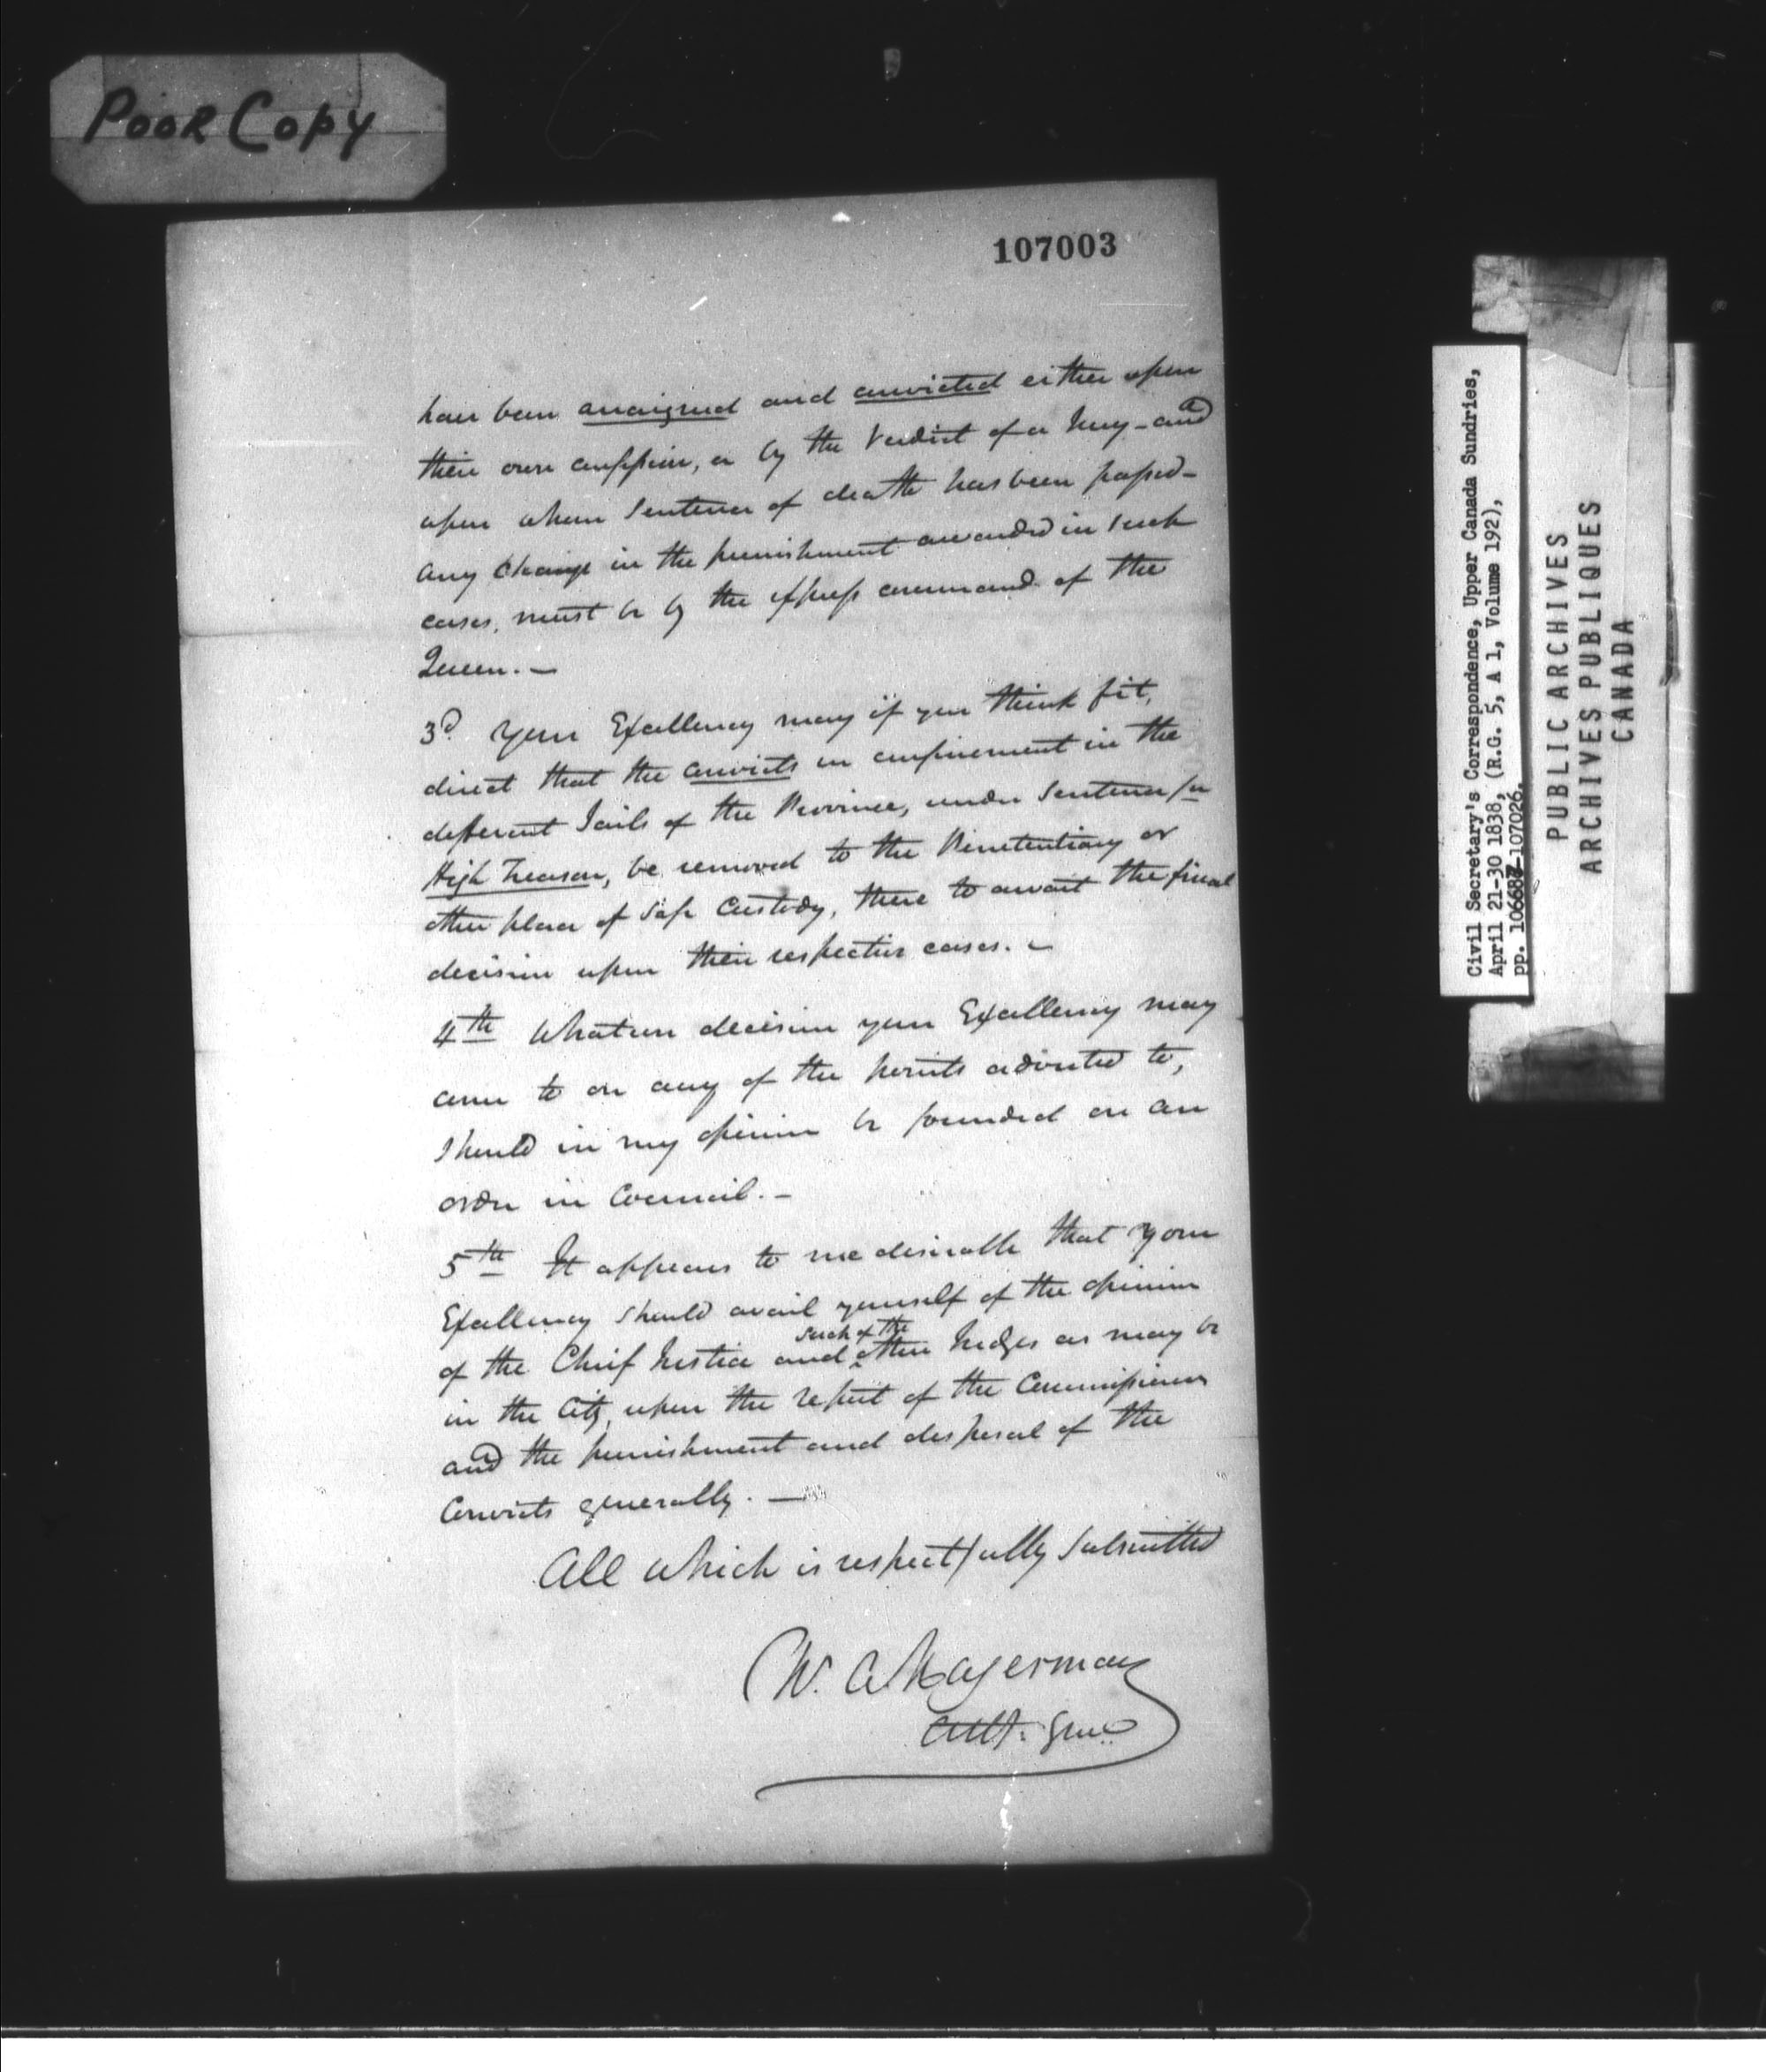 Poor Copy
107003
have been arraigned and convicted either upon
their own confession, or by the Verdict of a Jury - and
upon whom Sentence of death has been passed -
any change in the punishment awarded in such
cases, must be by the express command of the
Queen. -
3d. Your Excellency may if you think fit,
direct that the convicts in confinement in the
different Jails of the Province, under Sentence for
High Treason, be removed to the Penitentiary or
other place of Safe Custody, there to await the final
decision upon their respective cases. -
4th Whatever decision your Excellency may
come to on any of the points adverted to,
should in my opinion be founded on an
order in Council. -
5th It appears to me desirable that your
Excellency should avail yourself of the opinion
such of the
of the Chief Justice and other Judges as may be
in the City, upon the report of the Commissioners
and the punishment and disposal of the
Convicts generally. -
All which is respectfully Submitted
W. A Hagerman
Att. Genl.
Civil Secretary's Correspondence, Upper Canada Sundries,
April 21-30 1838, (R.G. 5, A 1, Volume 192),
pp. 106687-107026.
PUBLIC ARCHIVES
ARCHIVES PUBLIQUES
CANADA